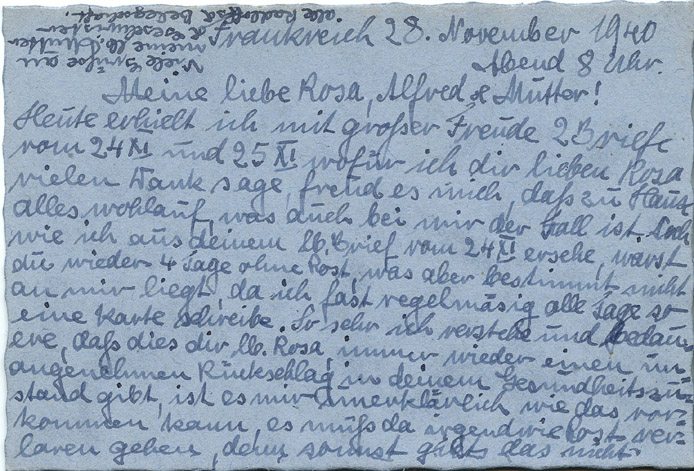 Frankreich 28. November 1940
Abend 8 Uhr.
Meine liebe Rosa, Alfred & Mutter!
Heute erhielt ich mit großer Freude 2 Briefe
vom 24 XI und 25 XI wofür ich dir lieben Rosa
vielen Dank sage, freud es mich, daß zu Haus
alles wohlauf, was auch bei mir der Fall ist. Doch
wie ich aus deinem lb. Brief vom 24 XI ersehe, warst
du wieder 4 Tage ohne Post, was aber bestimmt nicht
an mir liegt, da ich fast regelmäsig alle Tage so
eine Karte schreibe. So sehr ich verstehe und bedau-
ere, daß dies dir lb. Rosa, immer wieder einen un-
angenehmen Rückschlag in deinem Gesundheitszu-
stand gibt, ist es mir unerklärlich wie das vor-
kommen kann, es muß da irgendwie Post ver-
laren gehen, denn sonnst gibts das nicht.
Viele Grüße an
meine lb. Mutter
& Geschwister
alle Radloffs & Belegschaft.